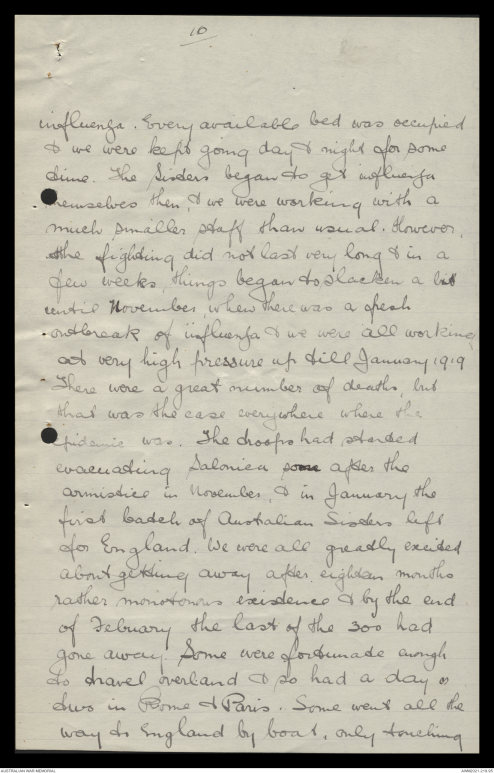 10
influenza. Every available bed was occupied
& we were kept going day & night for some
time. The Sisters began to get influenza
themselves then, & we were working with a
much smaller staff than usual. However,
the fighting did not last very long & in a
few weeks, things began to slacken a bit
until November, when there was a fresh
outbreak of influenza & we were all working
at very high pressure up till January 1919
There were a great number of deaths, but
that was the case everywhere where the
epidemic was. The troops had started
evacuating Salonica after the
armistice in November, & in January the
first batch of Australian Sisters left
for England. We were all greatly excited
about getting away after eighteen months
rather monotonous existence & by the end
of Febuary the last of the 300 had
gone away. Some were fortunate enough
to travel overland & so had a day or
two in Rome & Paris. Some went all the
way to England by boat, only touching
AUSTRALIAN WAR MEMORIAL